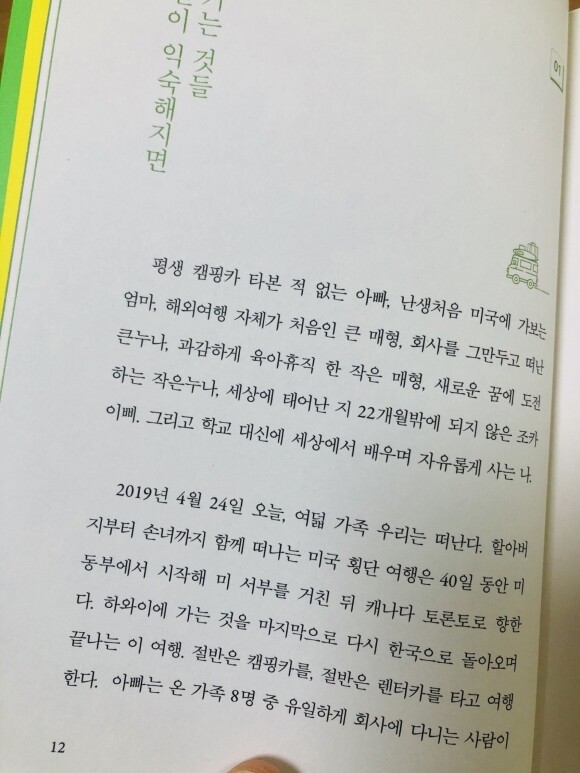 가는 것들
이 익숙해지면
01
평생 캠핑카 타본 적 없는 아빠, 난생처음 미국에 가보는
엄마, 해외여행 자체가 처음인 큰 매형, 회사를 그만두고 떠난
큰누나, 과감하게 육아휴직 한 작은 매형, 새로운 꿈에 도전
하는 작은누나, 세상에 태어난 지 22개월밖에 되지 않은 조카
이삐. 그리고 학교 대신에 세상에서 배우며 자유롭게 사는 나.
2019년 4월 24일 오늘, 여덟 가족 우리는 떠난다. 할아버
지부터 손녀까지 함께 떠나는 미국 횡단 여행은 40일 동안 미
동부에서 시작해 미 서부를 거친 뒤 캐나다 토론토로 향한
다. 하와이에 가는 것을 마지막으로 다시 한국으로 돌아오며
끝나는 이 여행. 절반은 캠핑카를, 절반은 렌터카를 타고 여행
한다. 아빠는 온 가족 8명 중 유일하게 회사에 다니는 사람이
12